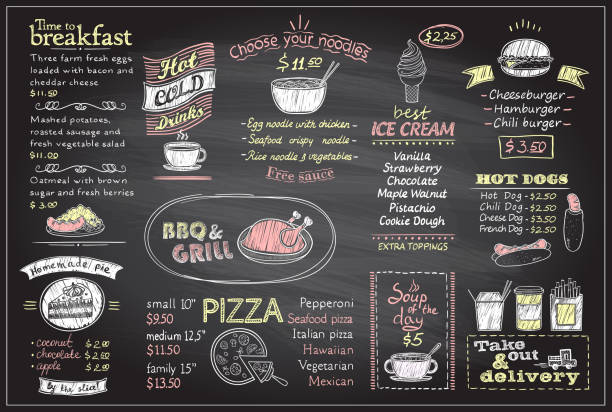 Time to
breakfast
Three farm fresh eggs
loaded with bacon and
cheddar cheese
$11.50
Mashed potatoes,
roasted sausage and
fresh vegetable salad
$11.00
Oatmeal with brown
sugar and fresh berries
$3.00
Homemade pie
• coconut $2.00
• chocolate $2.00
• apple $2.00
By the slice!
Hot
COLD
Drinks
Choose your noodles
$11.50
- Egg noodle with chicken -
- Seafood crispy noodle -
- Rice noodle & vegetables -
Free sauce
BBQ &
GRILL
PIZZA
small 10"
$9.50
medium 12,5"
$11.50
family 15"
$13.50
Pepperoni
Seafood pizza
Italian pizza
Hawaiian
Vegetarian
Mexican
$2,25
best
ICE CREAM
Vanilla
Strawberry
Chocolate
Maple Walnut
Pistachio
Cookie Dough
EXTRA TOPPINGS
Soup
of the
day
$5
- Cheeseburger -
- Hamburger -
- Chili burger -
$3.50
HOT DOGS
Hot Dog - $2.50
Chili Dog - $2.50
Cheese Dog - $3.50
French Dog - $2.50
Take out
& delivery